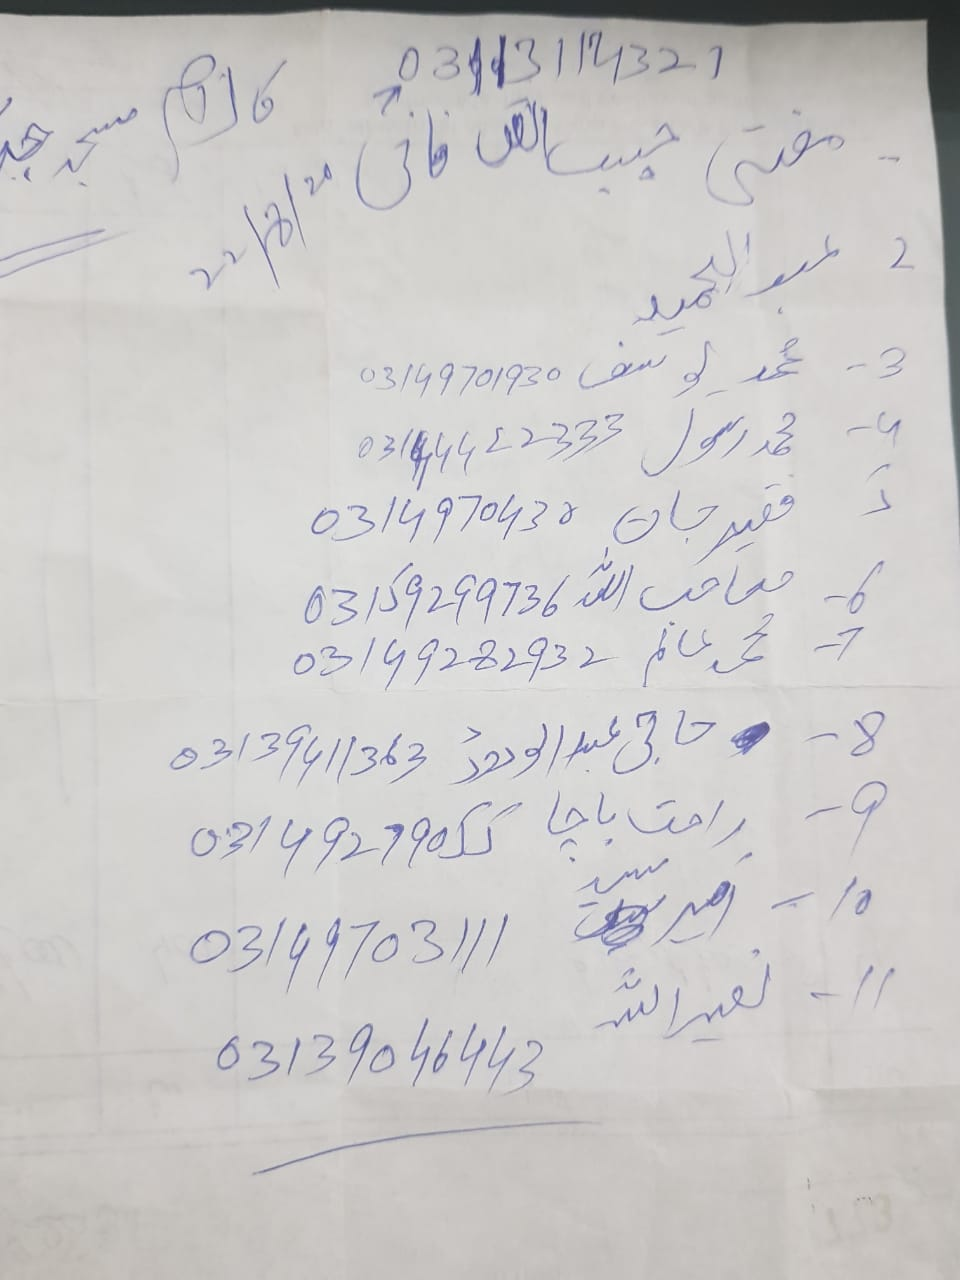 03113114321
مسجد
- مفتی حبیب اللہ
22/8/20
2 عبد الحمید
3- محمد یوسف 03149701930
4- محمد رسول 03144422333
5 فقیر جان 0314970432
6- صاحب اللہ 03159299736
7- محمد عالم 03149282932
8- حاجی عبد الودود 03139411363
9- راحت باچا 03149279055
10- امیر سید
03149703111
11- نصیر اللہ
03139046443